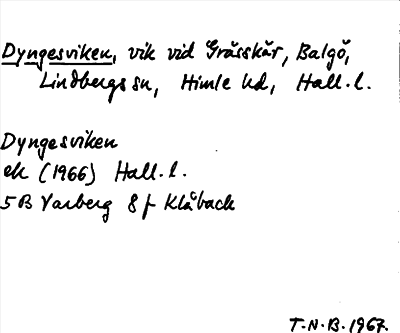 Dyngesviken, vik vid Gråsskär, Balgö,
Lindbergs sn, Himle hd, Hall. l.
Dyngesviken
ek (1966) Hall. l.
5B Varberg 8 f Klåback
T.N.B. 1967.